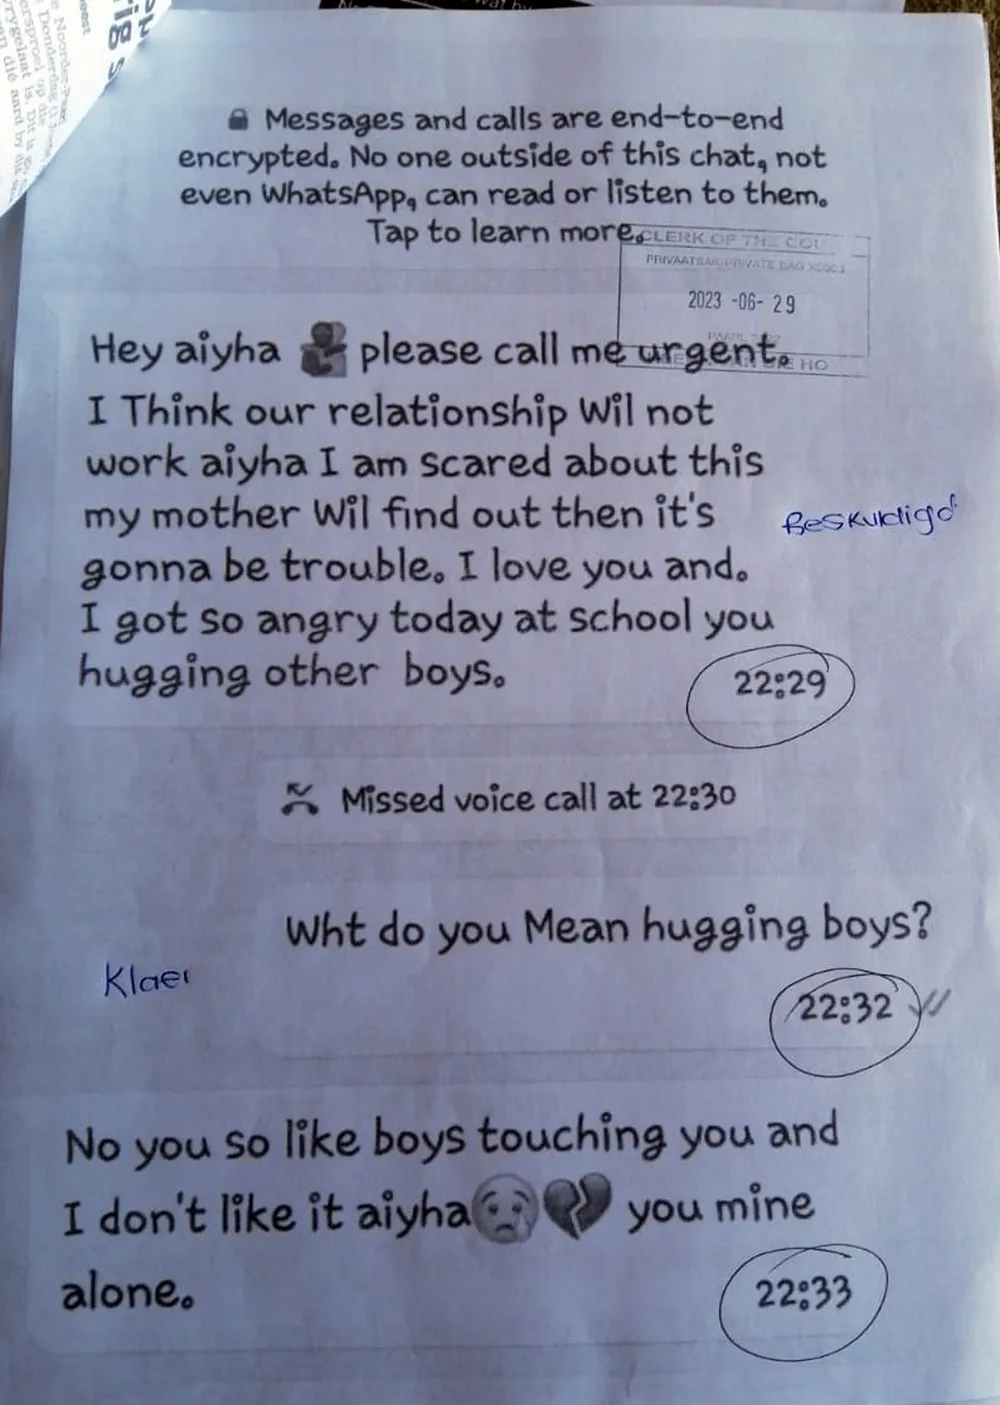 Messages and calls are end-to-end
encrypted. No one outside of this chat, not
even WhatsApp, can read or listen to them.
Tap to learn more.
CLERK OF THE COU
PRIVAATSAK/PRIVATE BAG
2023 -06- 29
Hey aiyha please call me urgent.
I Think our relationship Wil not
work aiyha I am scared about this
my mother Wil find out then it's
Beskuldigd
gonna be trouble. I love you and.
I got so angry today at school you
hugging other boys.
22:29
Missed voice call at 22:30
Wht do you Mean hugging boys?
Klaer
22:32
No you so like boys touching you and
I don't like it aiyha you mine
alone.
22:33